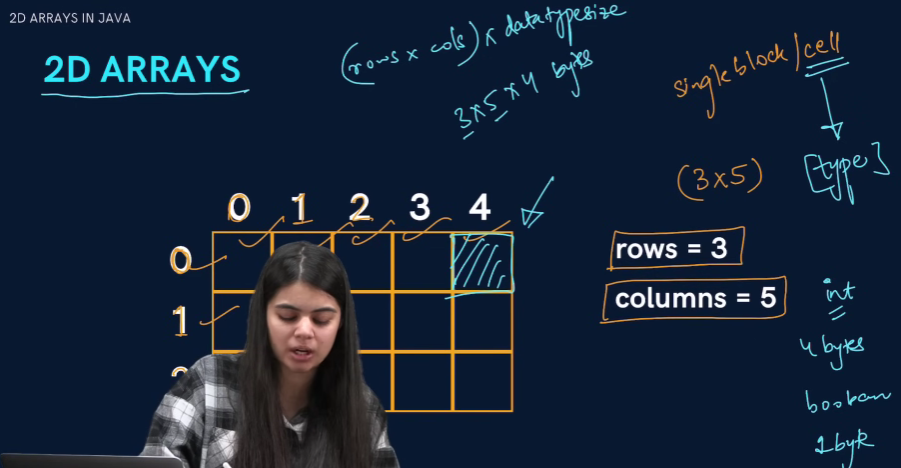 2D ARRAYS IN JAVA
2D ARRAYS
(rows x cols) x datatypesize
3x5 x 4 bytes
single block/cell
(3x5)
[type]
0 1 2 3 4
0
1
rows = 3
columns = 5
int
4 bytes
boolean
1 byte